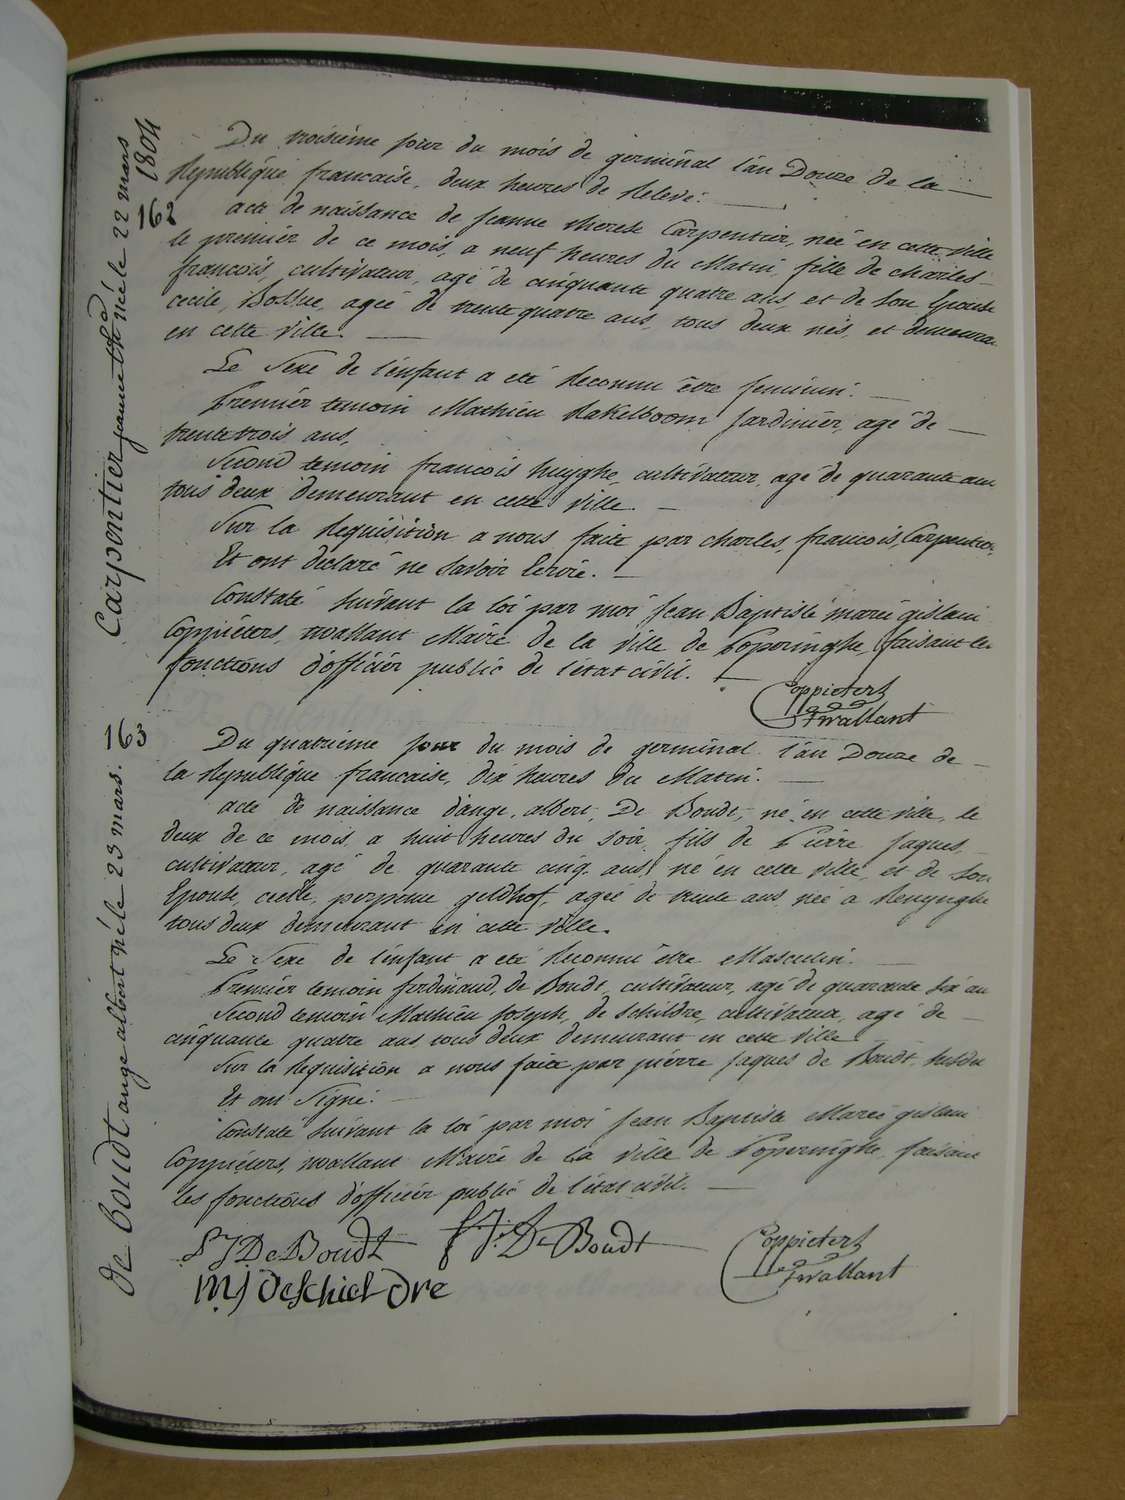 Carpentier jeanne thé née le 22 mars 1804
162
Du troisième jour du mois de germinal l'an Douze de la
Republique francaise, deux heures de Relevé.
acte de naissance de Jeanne therese Carpentier, née en cette ville
le premier de ce mois, a neuf heures du Matin, fille de charles
francois, cultivateur, agé de cinquante quatre ans, et de son Epouse
cecile, Bollue, agée de trente quatre ans, tous deux nés, et demeuran
en cette ville.
Le Sexe de l'enfant a eté Reconnu être feminin.
Premier temoin Mathieu Rakelboom Jardinier, agé de
trente trois ans,
Second temoin francois huyghe, cultivateur, agé de quarante ans
tous deux demeurant en cette ville.
Sur la Requisition a nous faite par charles, francois, Carpentier,
Et ont déclaré ne Savoir Ecrire.
Constaté Suivant la loi par moi Jean Baptiste marie gislain
Coppieters, twallant Maire de la ville de Poperinghe, faisant les
fonctions d'officier public de l'état civil.
Coppieters
Twallant
de Boudt ange albert né le 23 mars.
163
Du quatrième jour du mois de germinal l'an Douze de
la Republique francaise, dix heures du Matin.
acte de naissance d'ange, albert, De Boudt, né en cette ville, le
deux de ce mois, a huit heures du Soir, fils de Pierre Jaques,
cultivateur, agé de quarante cinq ans, né en cette ville, et de Son
Epouse, cecile, perpetue geldhof, agée de trente ans, née a Renynghe
tous deux demeurant en cette ville.
Le Sexe de l'enfant a eté Reconnu être Masculin.
Premier temoin ferdinand, de Boudt, cultivateur, agé de quarante Six an
Second temoin Mathieu Joseph, de Schildre, cultivateur, agé de
cinquante quatre ans, tous deux demeurant en cette ville
Sur la Requisition a nous faite par pierre Jaques de Boudt, Susdit
Et ont Signé.
Constaté Suivant la loi par moi Jean Baptiste Marie gislain
Coppieters, twallant Maire de la ville de Poperinghe, faisant
les fonctions d'officier public de l'état civil.
P J De Boudt F. J. De Boudt
MJ deschieldre
Coppieters
Twallant